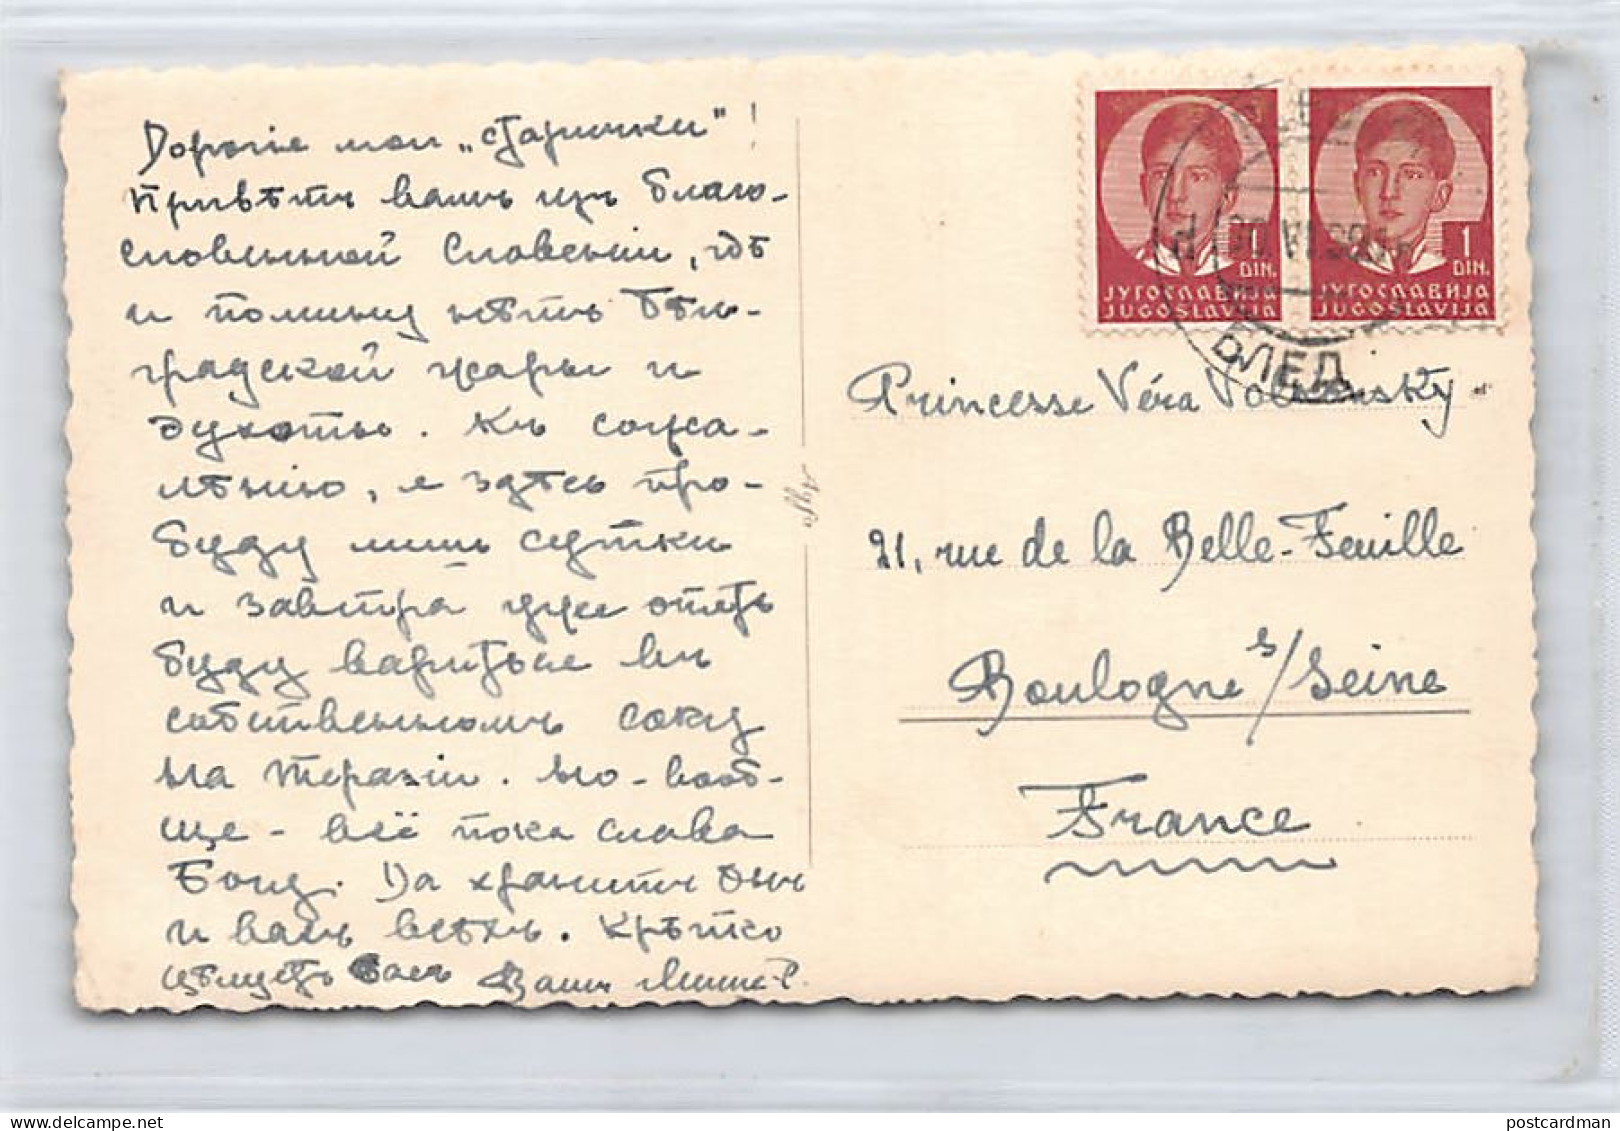 Дорогiе мои „старички"!
Привѣтъ вамъ изъ благо-
словенной Словенiи, гдѣ
и помину нѣтъ Бѣл-
градской жары и
духоты. Къ сожа-
лѣнiю, я здѣсь про-
буду лишь сутки
и завтра уже опять
буду вариться въ
собственномъ соку
на Теразiи. Но-вооб-
ще - всё пока слава
Богу. Да хранитъ Онъ
и васъ всѣхъ. Крѣпко
цѣлуетъ васъ Вашъ
1
DIN.
ЈУГОСЛАВИЈА
JUGOSLAVIJA
1
DIN.
ЈУГОСЛАВИЈА
JUGOSLAVIJA
БЛЕД
Princesse Véra Volkonsky
21, rue de la Belle-Feuille
Boulogne s/Seine
France
postcardman